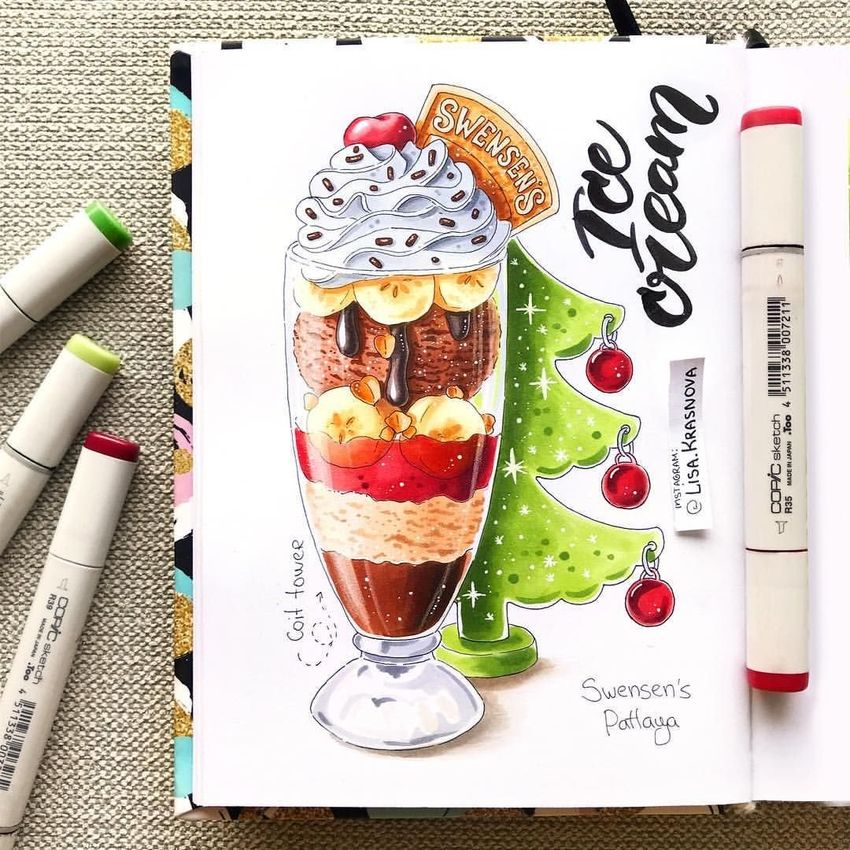 SWENSEN'S
Ice
cream
INSTAGRAM:
@LISA.KRASNOVA
Coit tower
Swensen's
Pattaya
COPIC sketch
.Too
MADE IN JAPAN
R35
4 511338 007211
COPIC sketch
.Too
MADE IN JAPAN
R39